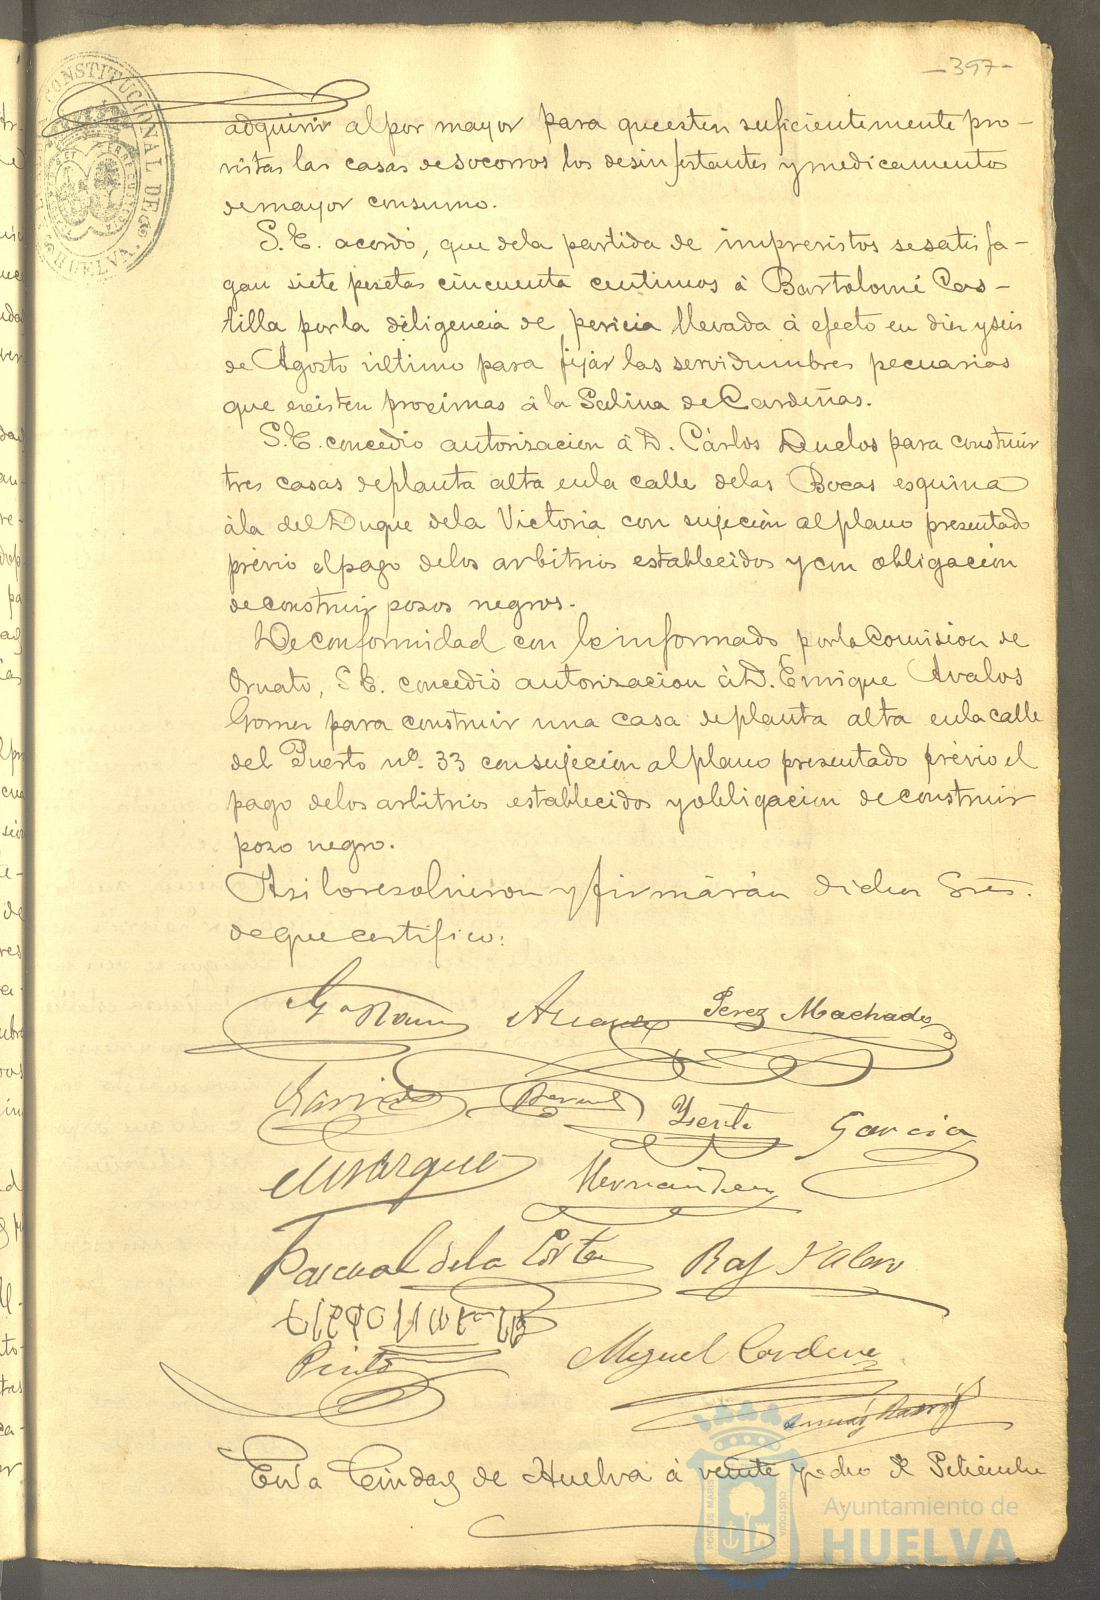 -397-
CONSTITUCIONAL DE HUELVA
adquirir al por mayor para que esten suficientemente pro-
vistas las casas de socorros los desinfectantes y medicamentos
de mayor consumo.
S.E. acordó, que de la partida de imprevistos se satisfa-
gan siete pesetas cincuenta centimos á Bartolomé Cas-
tilla por la diligencia de pericia llevada á efecto en diez y seis
de Agosto último para fijar las servidumbres pecuarias
que existen proximas á la Salina de Cardeñas.
S.E. concedió autorizacion á D. Cárlos Duclos para construir
tres casas de planta alta en la calle de las Bocas esquina
á la del Duque de la Victoria con sujeción al plano presentado
prévio el pago de los arbitrios establecidos y con obligación
de construir pozos negros.
De conformidad con lo informado por la Comision de
Ornato, S.E. concedió autorizacion á D. Enrique Avalos
Gomez para construir una casa de planta alta en la calle
del Puerto nº. 33 con sujeción al plano presentado prévio el
pago de los arbitrios establecidos y obligacion de construir
pozo negro.
Asi lo resolvieron y firmarán dichos Sres.
de que certifico:
Perez Machado
Garrido
Garcia
Marquez
Hernandez
Pascual de la Corte
Raf
Pinto
Miguel
En la Ciudad de Huelva á veinte y ocho de Setiembre
Ayuntamiento de
HUELVA